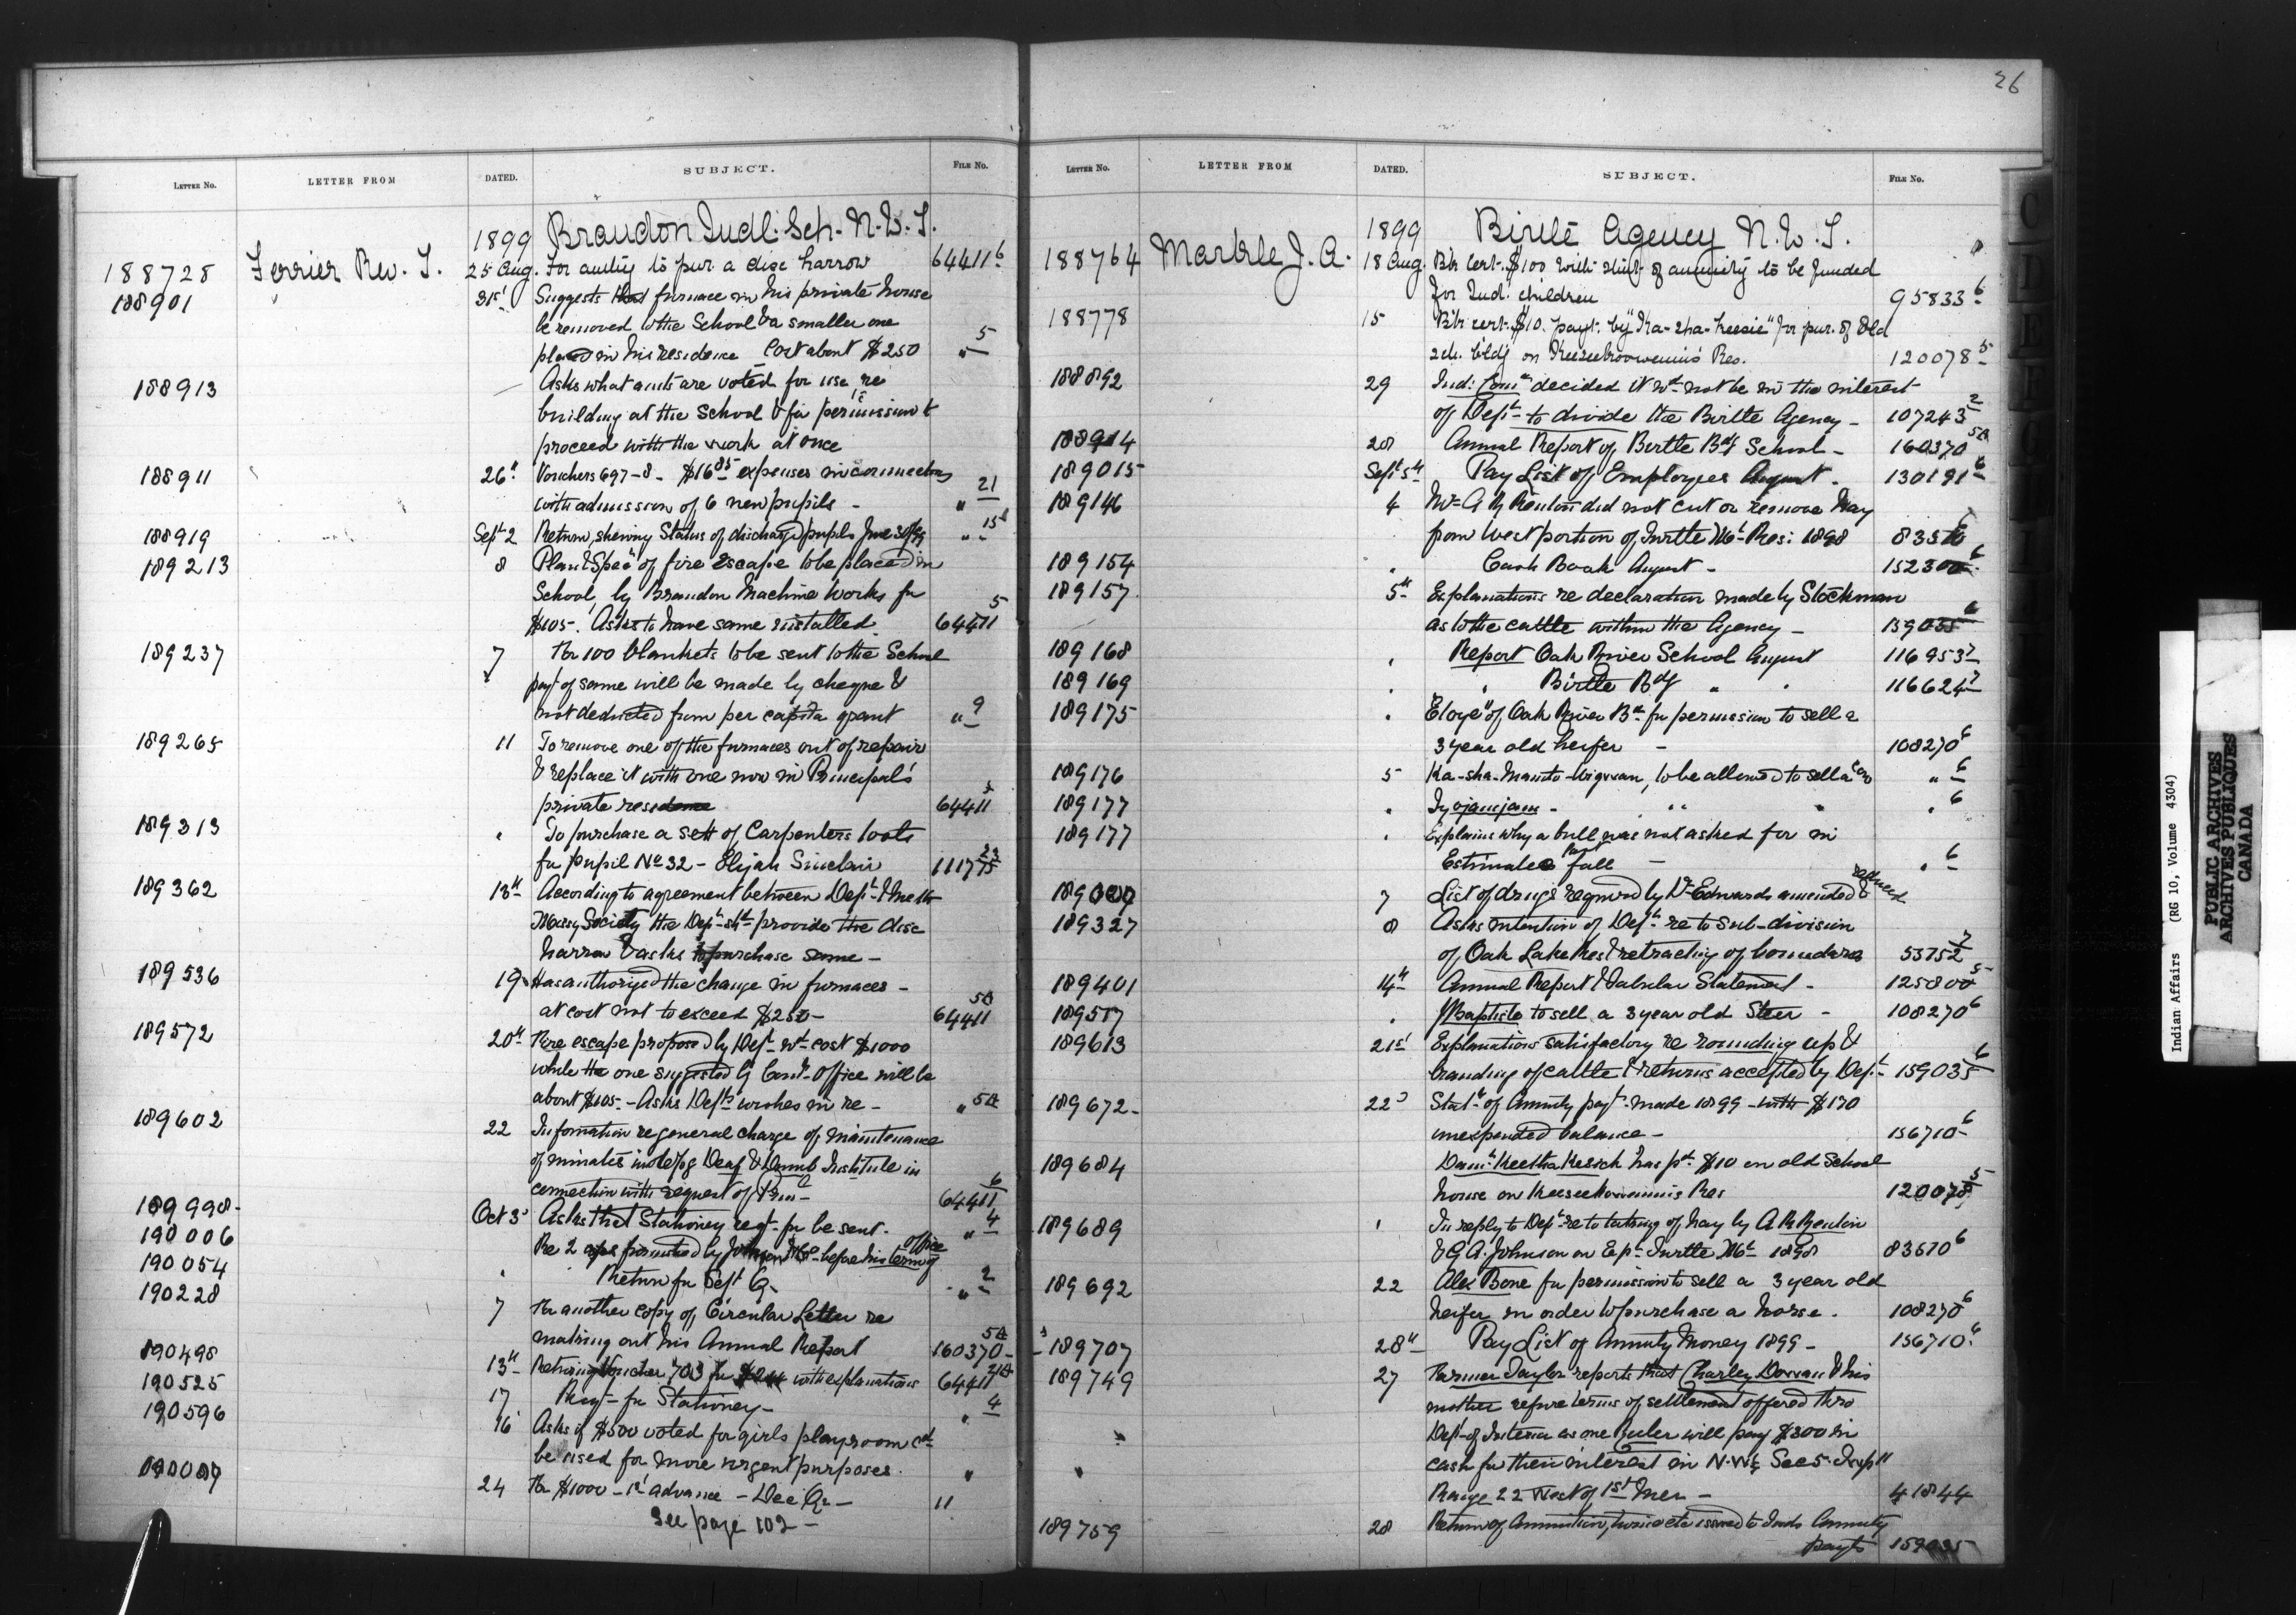 26
LETTER NO. LETTER FROM DATED. SUBJECT. FILE NO.
1899 Brandon Indl. Sch. N.W.T.
188725 Ferrier Rev. T. 25 Aug. For authy to pur. a disc harrow 64411 6
188901 31st Suggests that furnace in his private house
be removed to the School & a smaller one
placed in his residence Cost about $250 " 5
188913 Asks what amts are voted for use re
building at the School & for permission to
proceed with the work at once
188911 26" Vouchers 697-8 - $16 85 expenses in connection
with admission of 6 new pupils - " 21
188919 Sept 2 Return, shewing Status of discharged pupils June 30/99 " 15
189213 8 Plan & Specn of fire escape to be placed in
School, by Brandon Machine Works for
$105-. Asks to have same installed 64411 5
189237 7 For 100 blankets to be sent to the School
payt of same will be made by cheque &
not deducted from per capita grant " 9
189265 11 To remove one of the furnaces out of repair
& replace it with one now in Principal's
private residence 64411 5
189313 " To purchase a sett of Carpenters tools
for pupil No 32 - Elijah Sinclair 111775 23
189362 13th According to agreement between Dept & Meth
Missy Society the Dept shd provide the disc
harrow & asks to purchase same -
189536 19 Has authorized the change in furnaces -
at cost not to exceed $250 - 64411 5A
189572 20th Fire escape proposed by Dept wd cost $1000
while the one suggested by Comrs Office will be
about $105 - Asks Depts wishes in re - " 5A
189602 22 Information re general charge of maintenance
of inmates in Deaf & Dumb Institute in
connection with request of Prinl - 64411 6
189998 - Oct 3d Asks that Stationery reqt for be sent. " 4
190006 Re 2 furnished by Johnson & Co - before his term of office
190054 " Return for Sept Qr " 2
190228 7 For another copy of Circular Letter re
making out his Annual Report 160370 - 5A
190498 13th Returning Voucher 703 for with explanations 64411 21A
190525 17 Reqt for Stationery - " 4
190596 16 Asks if $500 voted for girls playroom cd
be used for more urgent purposes. "
24 For $1000 - 1st advance - Dec Qr - 11
See page 102 -
LETTER NO. LETTER FROM DATED. SUBJECT. FILE NO.
1899 Birtle Agency N.W.T.
188764 Markle J. A. 18 Aug. B'k Cert. $100 with stmt of annuity to be funded
for Ind. children 95833 6
188778 15 B'k cert. $10. payt. by for pur. of Old
sch. b'ldg on Res. 120078 5
188892 29 Ind: Comr decided it wd not be in the interest
of Dept to divide the Birtle Agency - 107243 2
188914 28 Annual Report of Birtle Bdg School - 160370 5A
189015 Sept 5th Pay List of Employees August - 130191 6
189146 4 Mr A R Renton did not cut or remove Hay
from West portion of Turtle Mt Res: 1898 83510 6
189154 " Cash Book August - 152300 6
189157 5th Explanations re declaration made by Stockman
as to the cattle within the Agency - 159035 6
189168 " Report Oak River School August 116953 7
189169 " " Birtle Bdg " " 116624 7
189175 " "Eloye" of Oak River Bd for permission to sell a
3 year old heifer - 108270 6
189176 5 Ka-sha-Manito-Wigwan, to be allowed to sell a cow " 6
189177 " Iyojamjam - " " " 6
189177 " Explains why a bull was not asked for in
Estimates last fall - " 6
7 List of drugs required by Dr Edwards amended & reduced
189327 8 Asks intention of Dept re to sub-division
of Oak Lake Res & retracting of boundaries 55752 7
189401 14th Annual Report & Tabular Statement - 125800 5
189517 " Baptiste to sell a 3 year old Steer - 108270 6
189613 21st Explanations satisfactory re rounding up &
branding of cattle & returns accepted by Dept 159035 6
189672 - 22d Statt of Annuity payt made 1899 - with $130
unexpended balance - 156710 6
189684 Danl. Keetha Kesick has pd $10 on old School
house on Keeseekoowenins Res 120078 5
189689 " In reply to Dept re to taking of hay by A R Renton
& G. A. Johnson on Turtle Mt 1898 83510 6
189692 22 Alex Bone for permission to sell a 3 year old
heifer in order to purchase a horse. 108270 6
189707 28th Pay List of Annuity Money 1899 - 156710 6
189749 27 Farmer Taylor reports that Charley Dowan & his
mother refuse terms of settlement offered thro
Dept of Interior as one Buler will pay $300 in
cash for their interest in N.W¼ Sec 5 Twp 11
Range 22 West of 1st Mer - 41844
189759 28 Return of Ammunition, twine etc issued to Inds Annuity
payts 159035
Indian Affairs (RG 10, Volume 4304)
PUBLIC ARCHIVES
ARCHIVES PUBLIQUES
CANADA